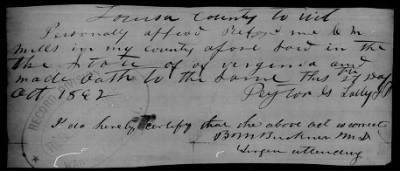 Louisa County to wit
Personally appeard Before me C M
Mills in my county afore said in the
the State of of virginia and
made Oath to the same this 29 Day
Oct 1892
I do hereby certify that the above act is correct
B M Buckner M.D.
Surgen attending
RECORD